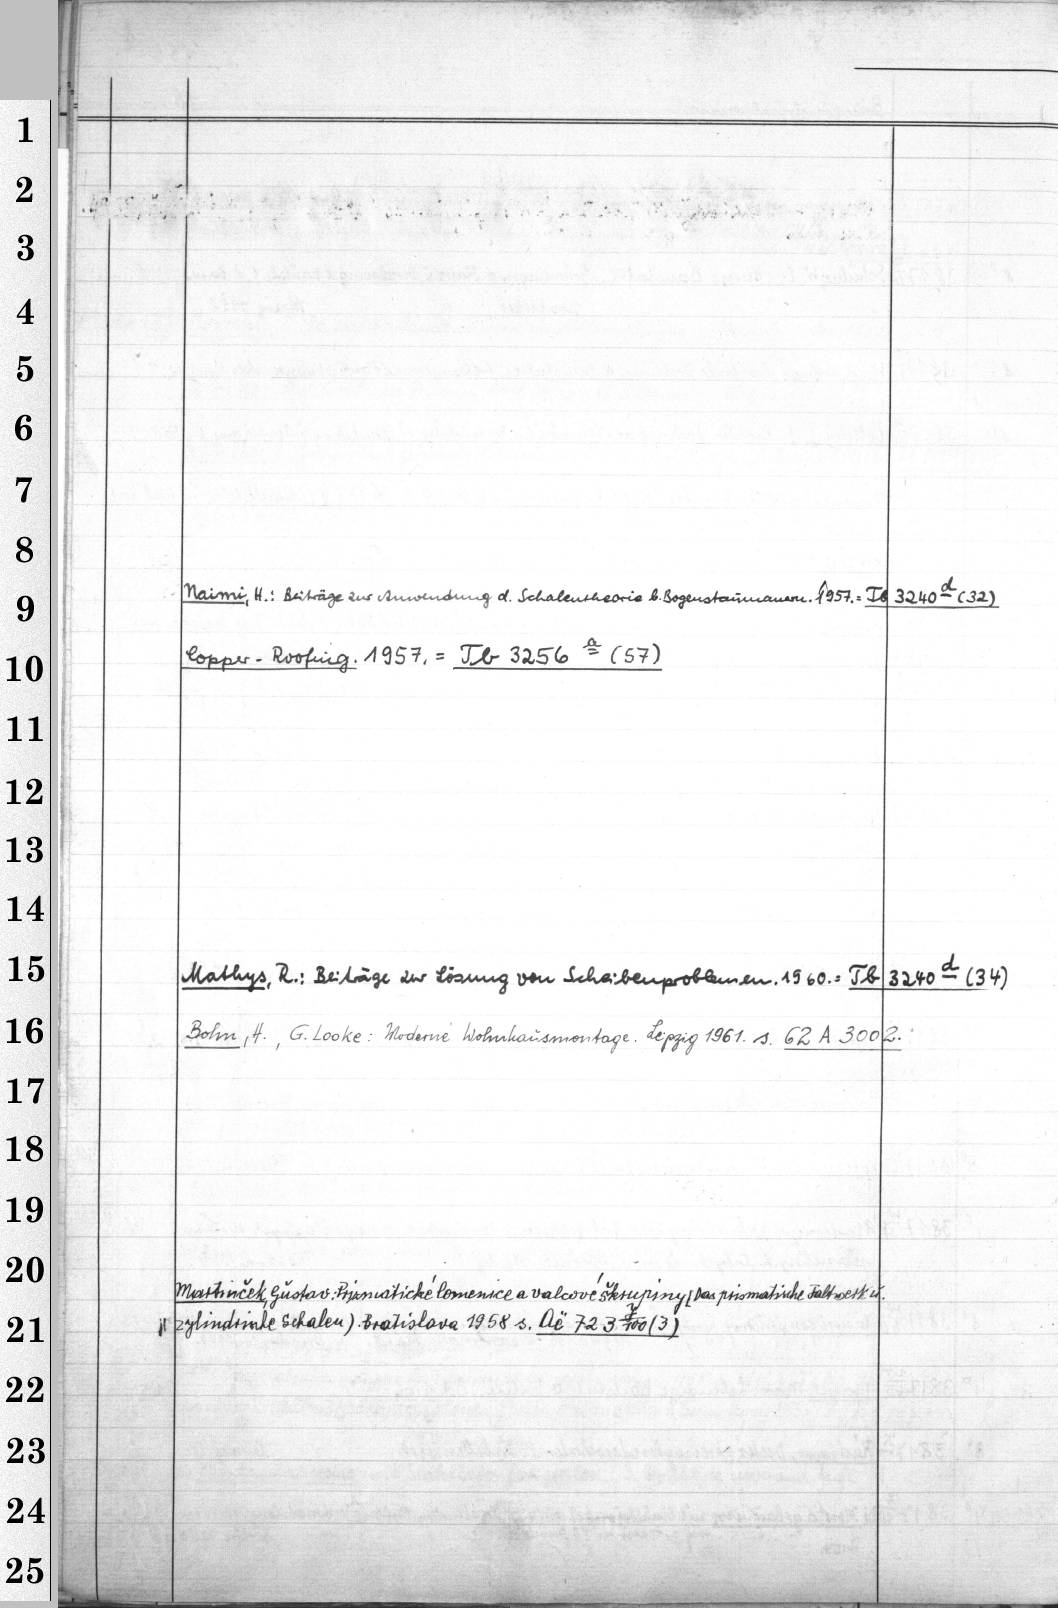 1
2
3
4
5
6
7
8
9 Naimi, H.: Beiträge zur Anwendung d. Schalentheorie b. Bogenstaumauern. 1957. = Tb 3240 d (32)
10 Copper-Roofing. 1957. = Tb 3256 a (57)
11
12
13
14
15 Mathys, R.: Beiträge zur Lösung von Scheibenproblemen. 1960. = Tb 3240 d (34)
16 Bohn, H., G. Looke: Moderne Wohnhausmontage. Leipzig 1961. s. 62 A 3002.
17
18
19
20 Martinček, Gustav: Prizmatické lomenice a valcové škrupiny [Das prismatische Faltwerk u.
21 zylindrische Schalen). Bratislava 1958 s. Aë 723 (3)
22
23
24
25